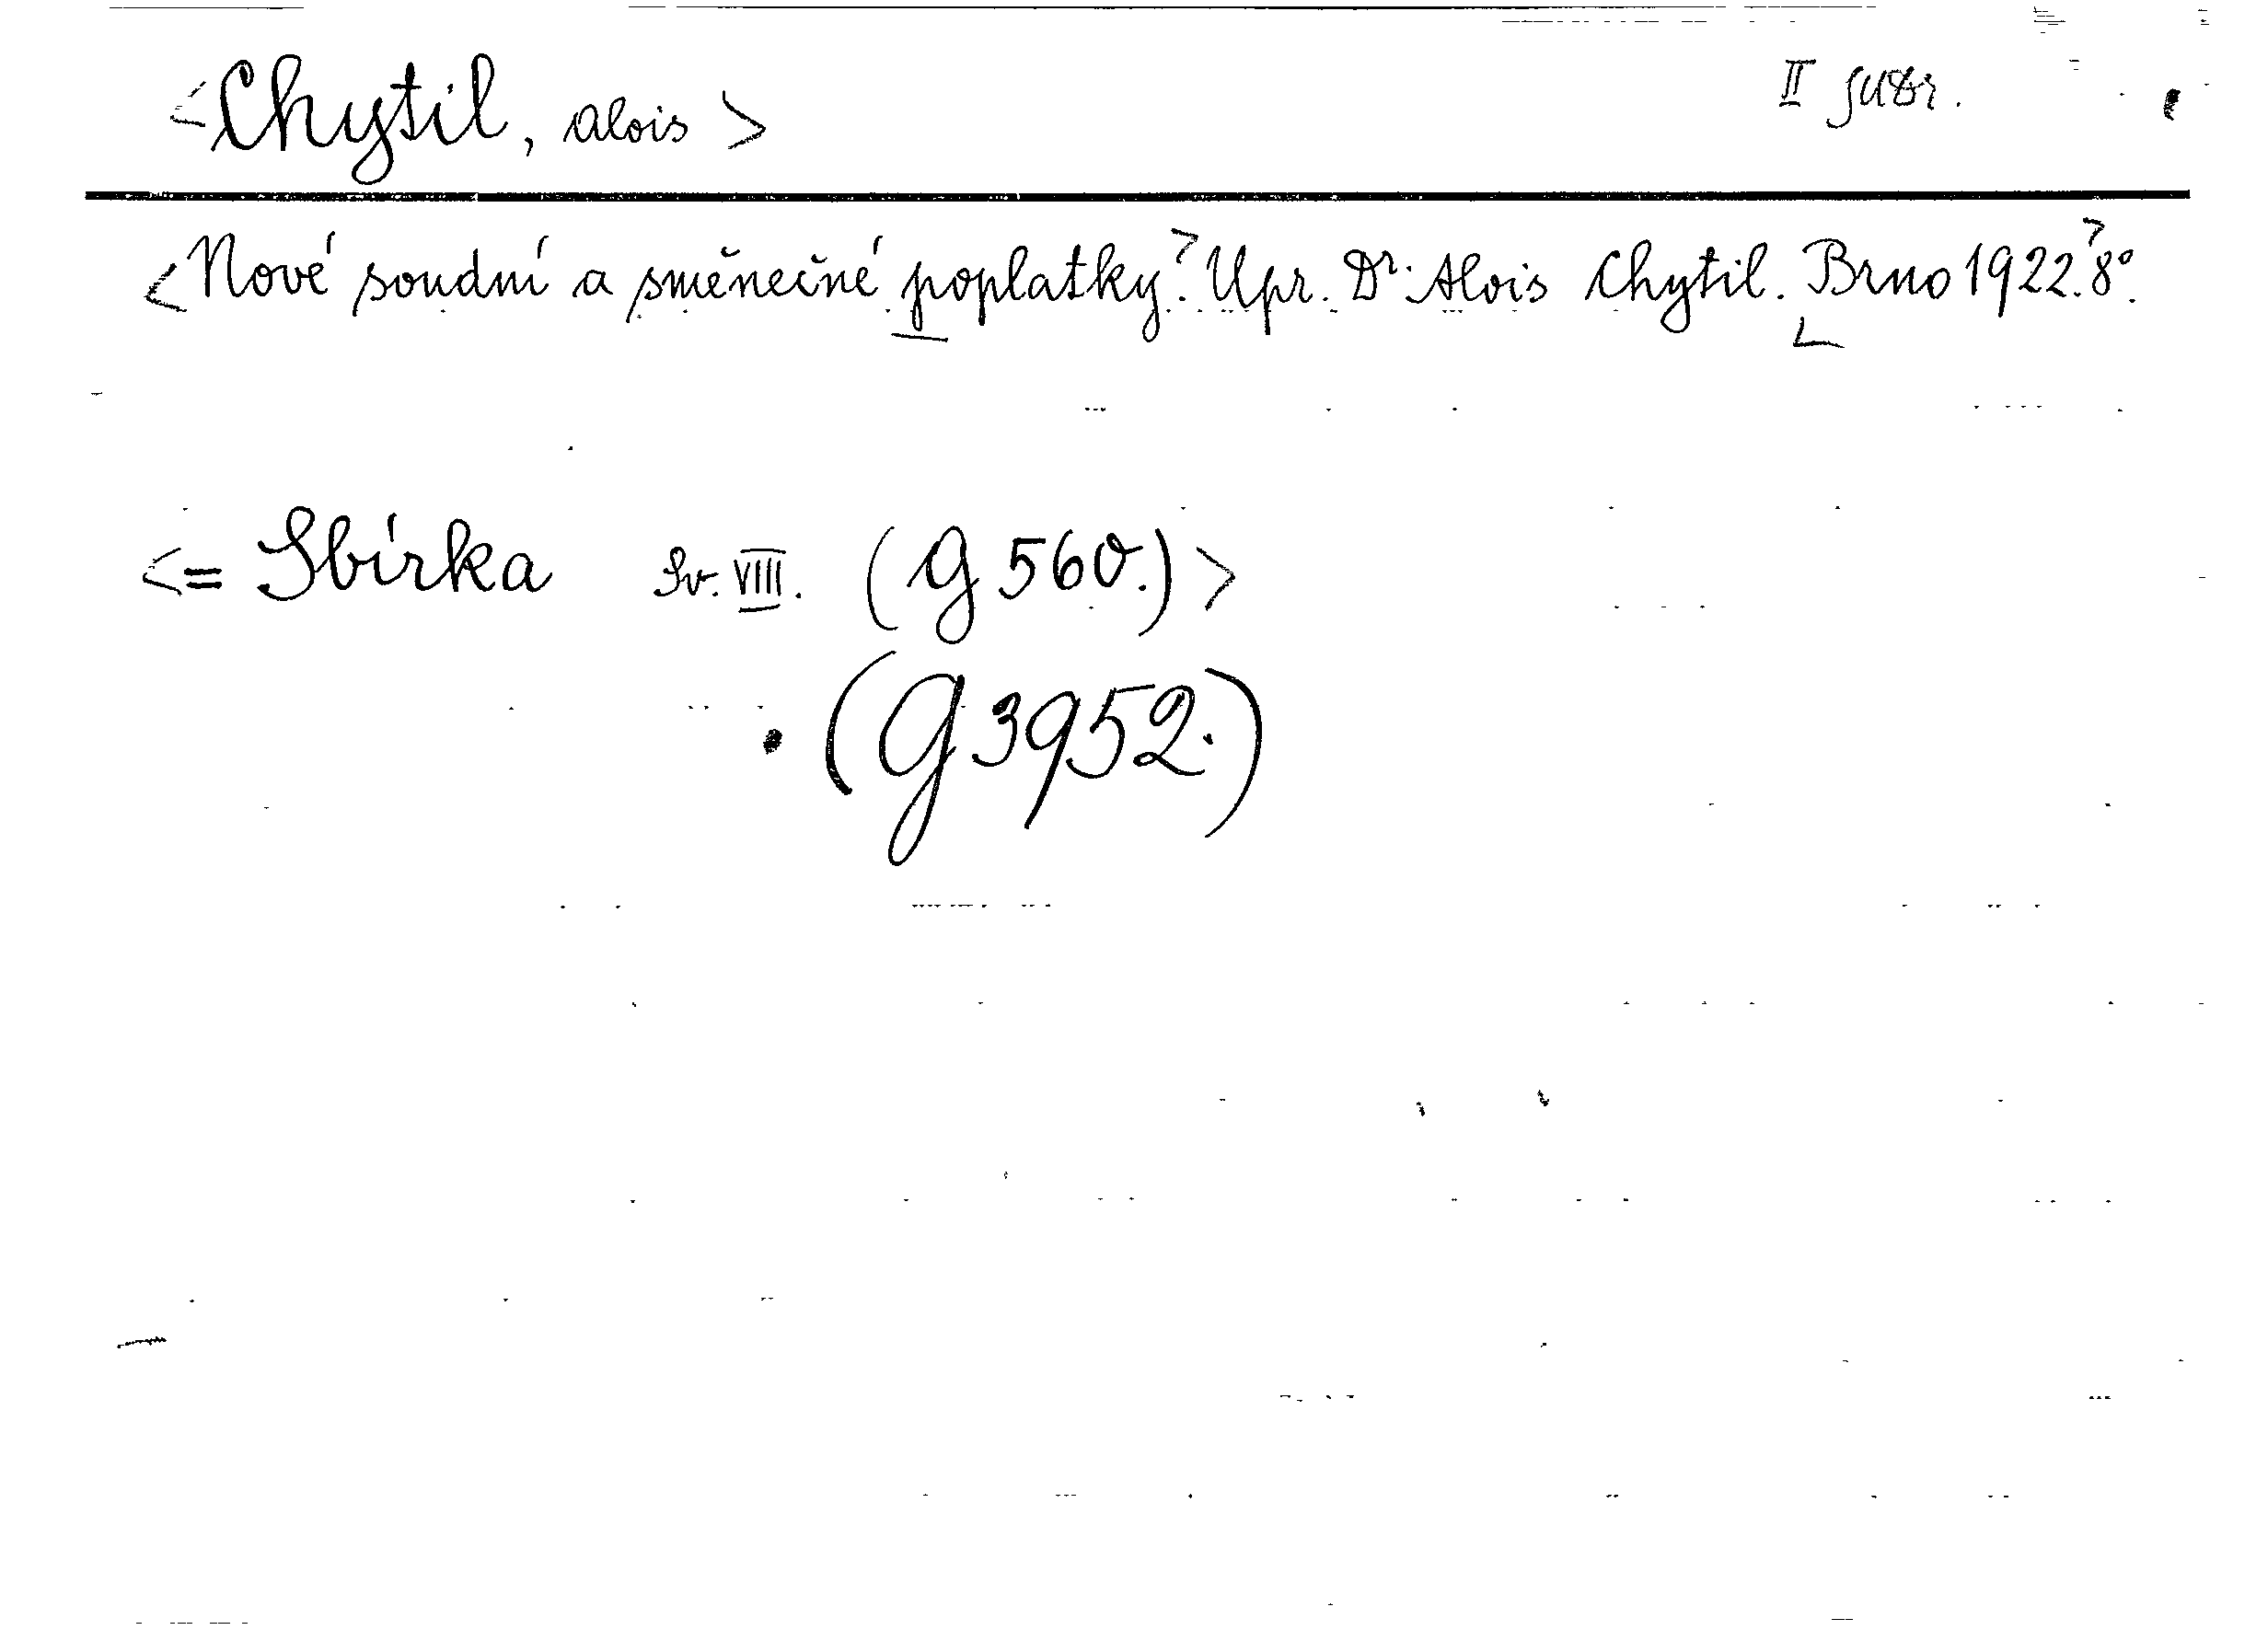 <Chytil, Alois> II
<Nové soudní a směnečné poplatky.> Upr. Dr. Alois Chytil. <Brno 1922.> 8°.
<= Sbírka Sv. VIII. (G 560.)>
(G 3952.)